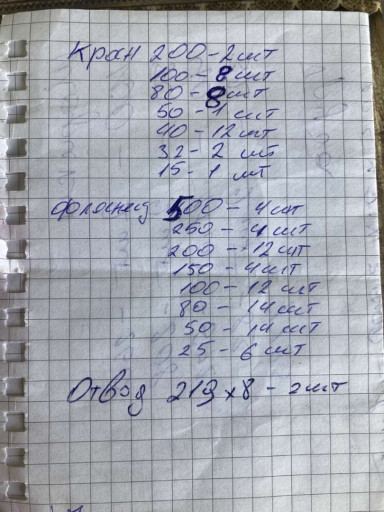 Кран 200 - 2 шт
100 - 8 шт
80 - 8 шт
50 - 1 шт
40 - 12 шт
32 - 2 шт
15 - 1 шт
фланец 500 - 4 шт
250 - 4 шт
200 - 12 шт
150 - 4 шт
100 - 12 шт
80 - 14 шт
50 - 14 шт
25 - 6 шт
Отвод 219 х 8 - 2 шт